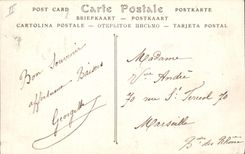 POST CARD Carte Postale POSTKARTE
BRIEFKAART — POSTKAART
CARTOLINA POSTALE — ОТКРЫТОЕ ПИСЬМО — TARJETA POSTAL
Bon Souvenir
affectueux Baisers
Georgette
Madame
Vve André
70 rue St. Ferréol 70
Marseille
B. du Rhône